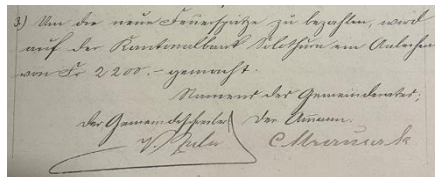 3.) Um die neue Feuerspritze zu bezahlen, wird
auf der Kantonalbank Solothurn ein Anleihen
von Fr 2200.- gemacht.
Namens des Gemeinderates;
Der Gemeindeschreiber: Der Ammann: